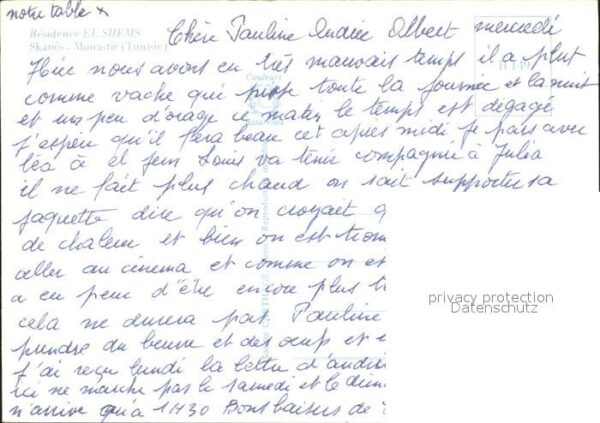 notre table x
Résidence EL SHEMS
Skanès - Monastir (Tunisie)
mercredi
Chère Pauline Andrée Albert
Hier nous avons eu très mauvais temps il a plut
comme vache qui pisse toute la journée et la nuit
et un peu d'orage ce matin le temps est dégagé
j'espère qu'il fera beau cet après midi je pars avec
léa à el Jem Louis va tenir compagnie à Julia
il ne fait plus chaud on sait supporter sa
jaquette dire qu'on croyait
de chaleur et bien on est
aller au cinema et comme on
a eu peur d'être encore plus
cela ne durera pas Pauline
prendre du beurre et des oeufs et
j'ai reçu lundi la lettre d'
ici ne marche pas le samedi et le
n'arrive qu'à 1H30 Bons baisers de
privacy protection
Datenschutz